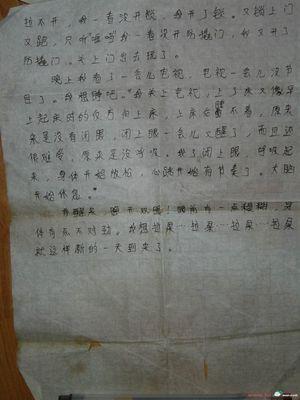 拉不开，我一看没开锁，我开了锁。又锁上门
又跑，只听嘭嘭我一看没开防撬门，我又开了
防撬门。关上门出去玩了。
晚上我看了一会儿电视，电视一会儿没节
目了。我想睡吧。我关上电视，上了床又像早
上起来时的反方向上来，上来后睡不着，原来
来是没有闭眼，闭上眼一会儿又醒了，而且还
很难受，原来是没呼吸。我又闭上眼，呼吸起
来，身体开始放松，心跳开始有节奏了。大脑
开始休息。
我醒来，睁开双眼！眼前有一点模糊，身
体有点不对劲。我想拉屎…拉屎…拉屎…拉屎
就这样新的一天到来了。